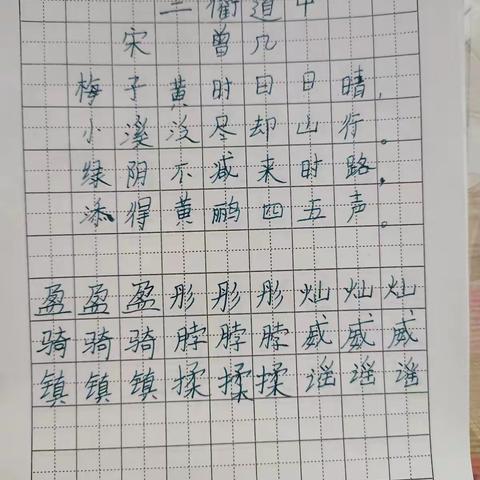 三衢道中
宋 曾几
梅子黄时日日晴，
小溪泛尽却山行。
绿阴不减来时路，
添得黄鹂四五声。
盈盈盈彤彤彤灿灿灿
骑骑骑脖脖脖威威威
镇镇镇揉揉揉谣谣谣